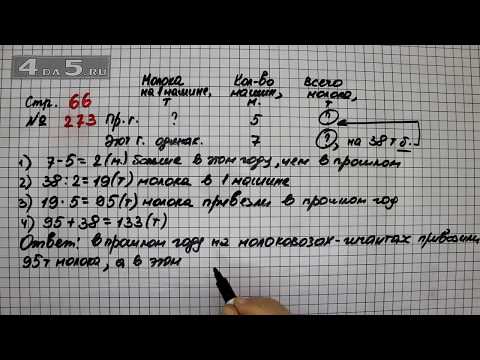 4DA5.RU
Молока Кол-во Всего
на 1 машине, машин, молока,
т м. т
Стр. 66
№ 273 Пр. г. ? 5 ?
Этот г. одинак. 7 ?, на 38 т б.
1) 7-5=2(м.) больше в этом году, чем в прошлом
2) 38:2=19(т) молока в 1 машине
3) 19·5=95(т) молока привезли в прошлом год
4) 95+38=133(т)
Ответ: в прошлом году на молоковозах-гигантах привезли
95т молока, а в этом